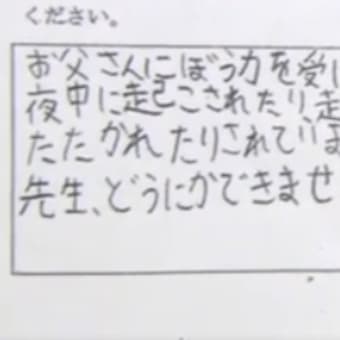 ください。
お父さんにぼう力を受
夜中に起こされたり、
たたかれたりされてい
先生、どうにかできませ